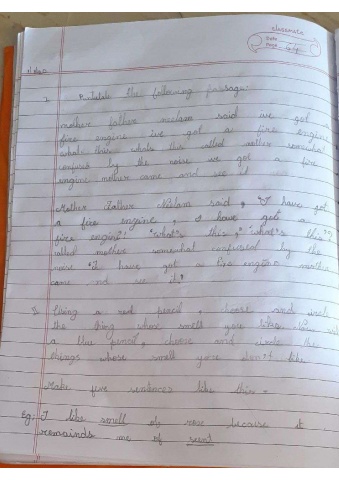 classmate
Date
Page
2. the following passage:
mother father neelam said we got a
fire engine ive got a fire engine
whats this whats this called mother somewhat
confused by the noise we got a fire
engine mother come and see it
Mother Father Neelam said, "I have got
a fire engine, I have got a
fire engine! "what's this, "what's this"?
called mother somewhat confused by the
noise "I have got a fire engine mother
come and see it."
3. Using a red pencil, choose and circle
the thing whose smell you like. Now with
a blue pencil, choose and circle the
things whose smell you don't like
Make five sentences like this -
Eg:- I like smell of rose because it
remainds me of